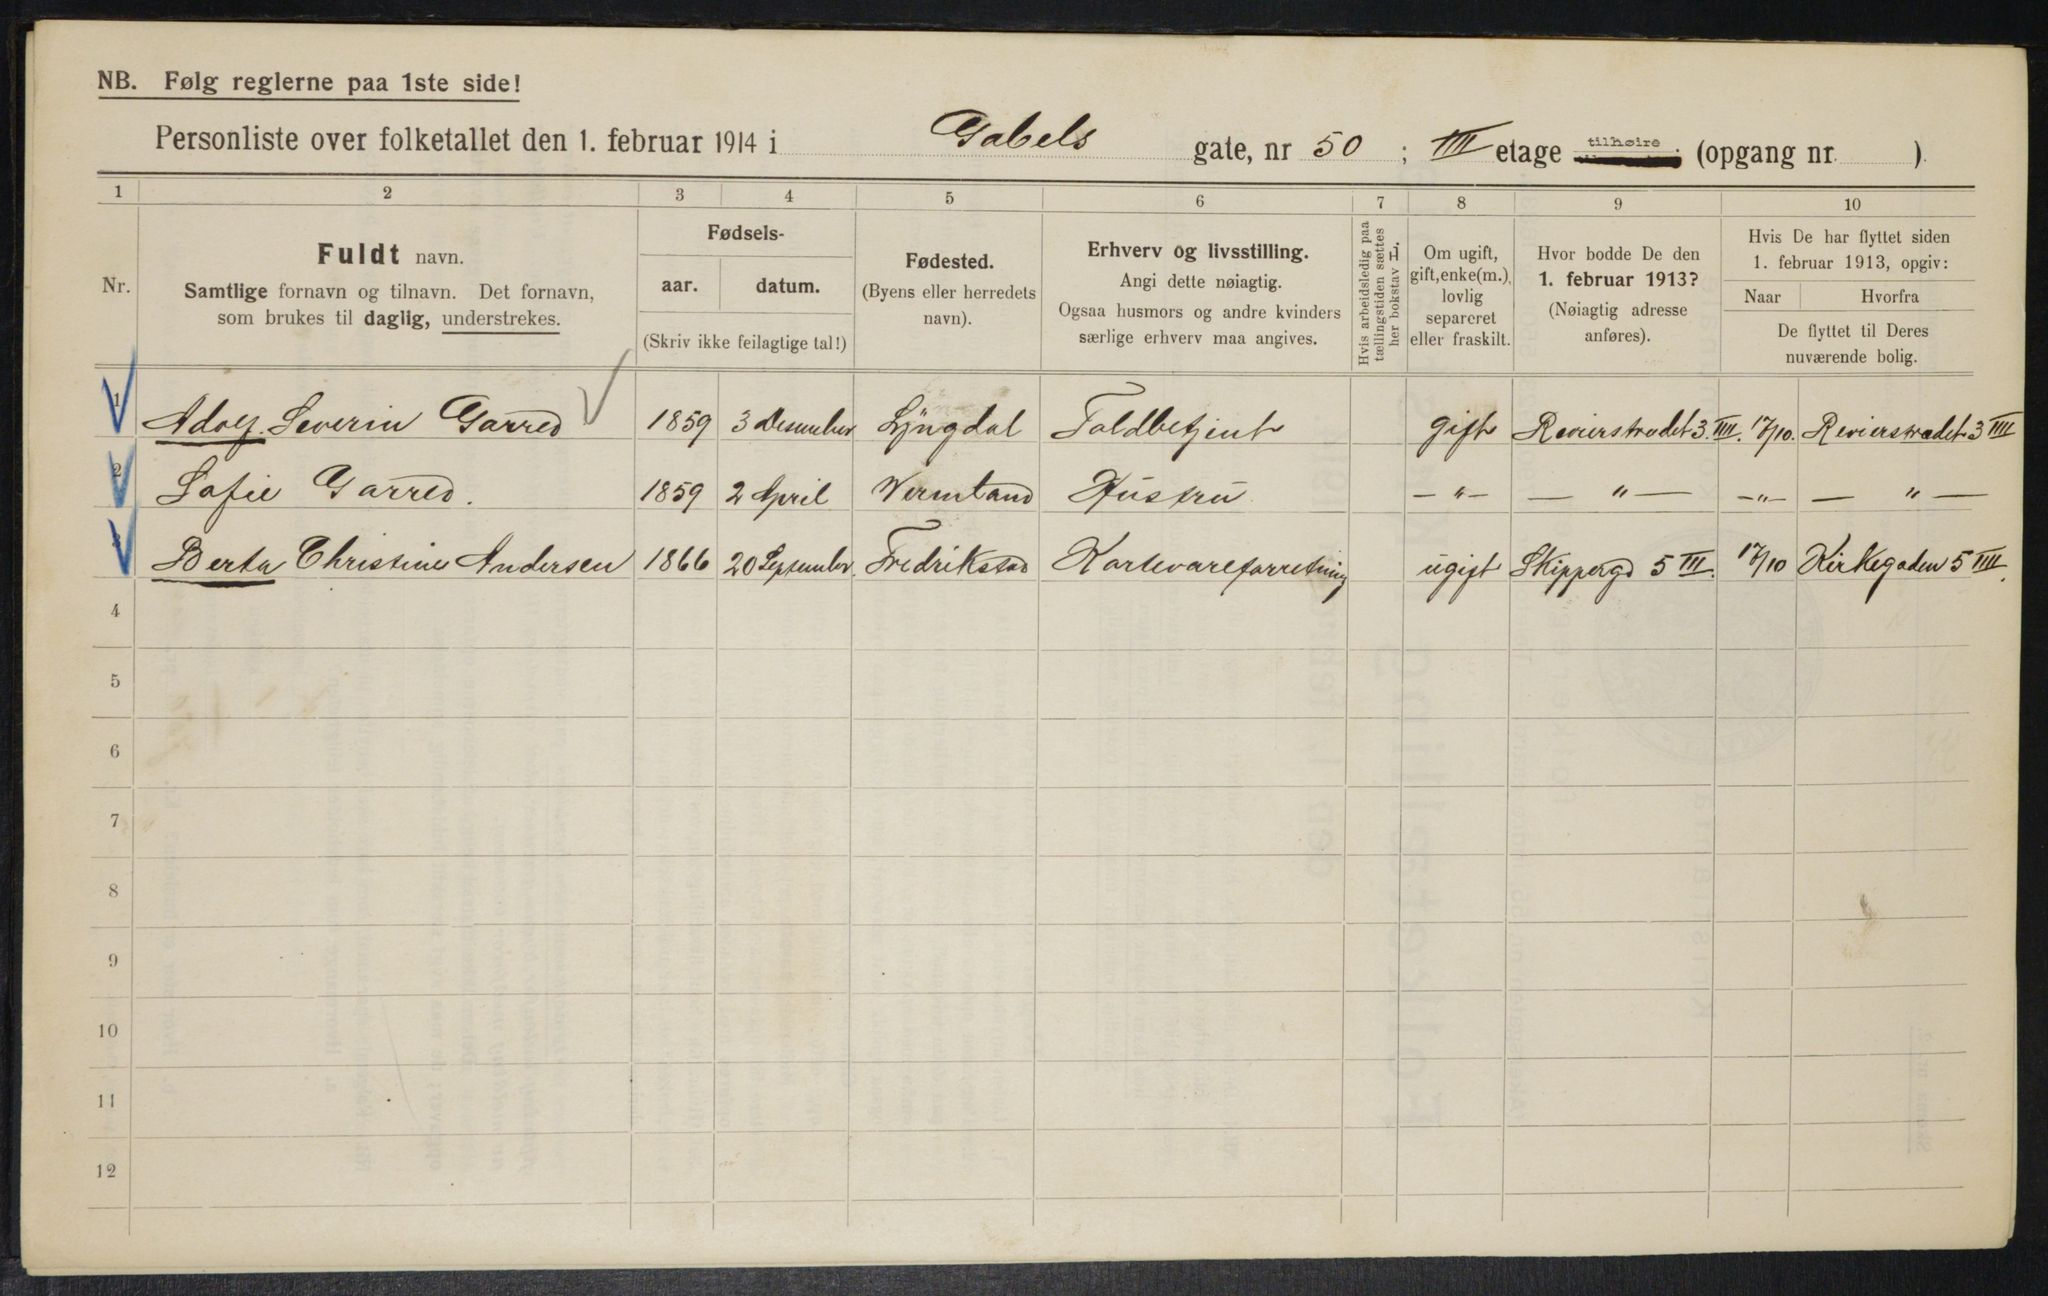 NB. Følg reglerne paa 1ste side!
Personliste over folketallet den 1. februar 1914 i Gabels gate, nr 50 ; IIII etage tilhøire. (opgang nr. )
1 2 3 4 5 6 7 8 9 10
Nr.
Fuldt navn.
Samtlige fornavn og tilnavn. Det fornavn,
som brukes til daglig, understrekes.
Fødsels-
aar. datum.
(Skriv ikke feilagtige tal!)
Fødested.
(Byens eller herredets
navn).
Erhverv og livsstilling.
Angi dette nøiagtig.
Ogsaa husmors og andre kvinders
særlige erhverv maa angives.
Hvis arbeidsledig paa
tællingstiden sættes
her bokstav L.
Om ugift,
gift, enke(m.),
lovlig
separeret
eller fraskilt.
Hvor bodde De den
1. februar 1913?
(Nøiagtig adresse
anføres).
Hvis De har flyttet siden
1. februar 1913, opgiv:
Naar Hvorfra
De flyttet til Deres
nuværende bolig.
1 Adolf Severin Garred 1859 3 Desember Lyngdal Toldbetjent gift Revierstrædet 3. IIII. 17/10. Revierstrædet 3 IIII
2 Sofie Garred. 1859 2 April Vermland Hustru — " — — " — — " — — " —
3 Berta Christine Andersen 1866 20 September. Fredrikstad Kortevareforretning ugift Skippergd 5 III. 17/10 Kirkegaden 5 IIII.
4
5
6
7
8
9
10
11
12